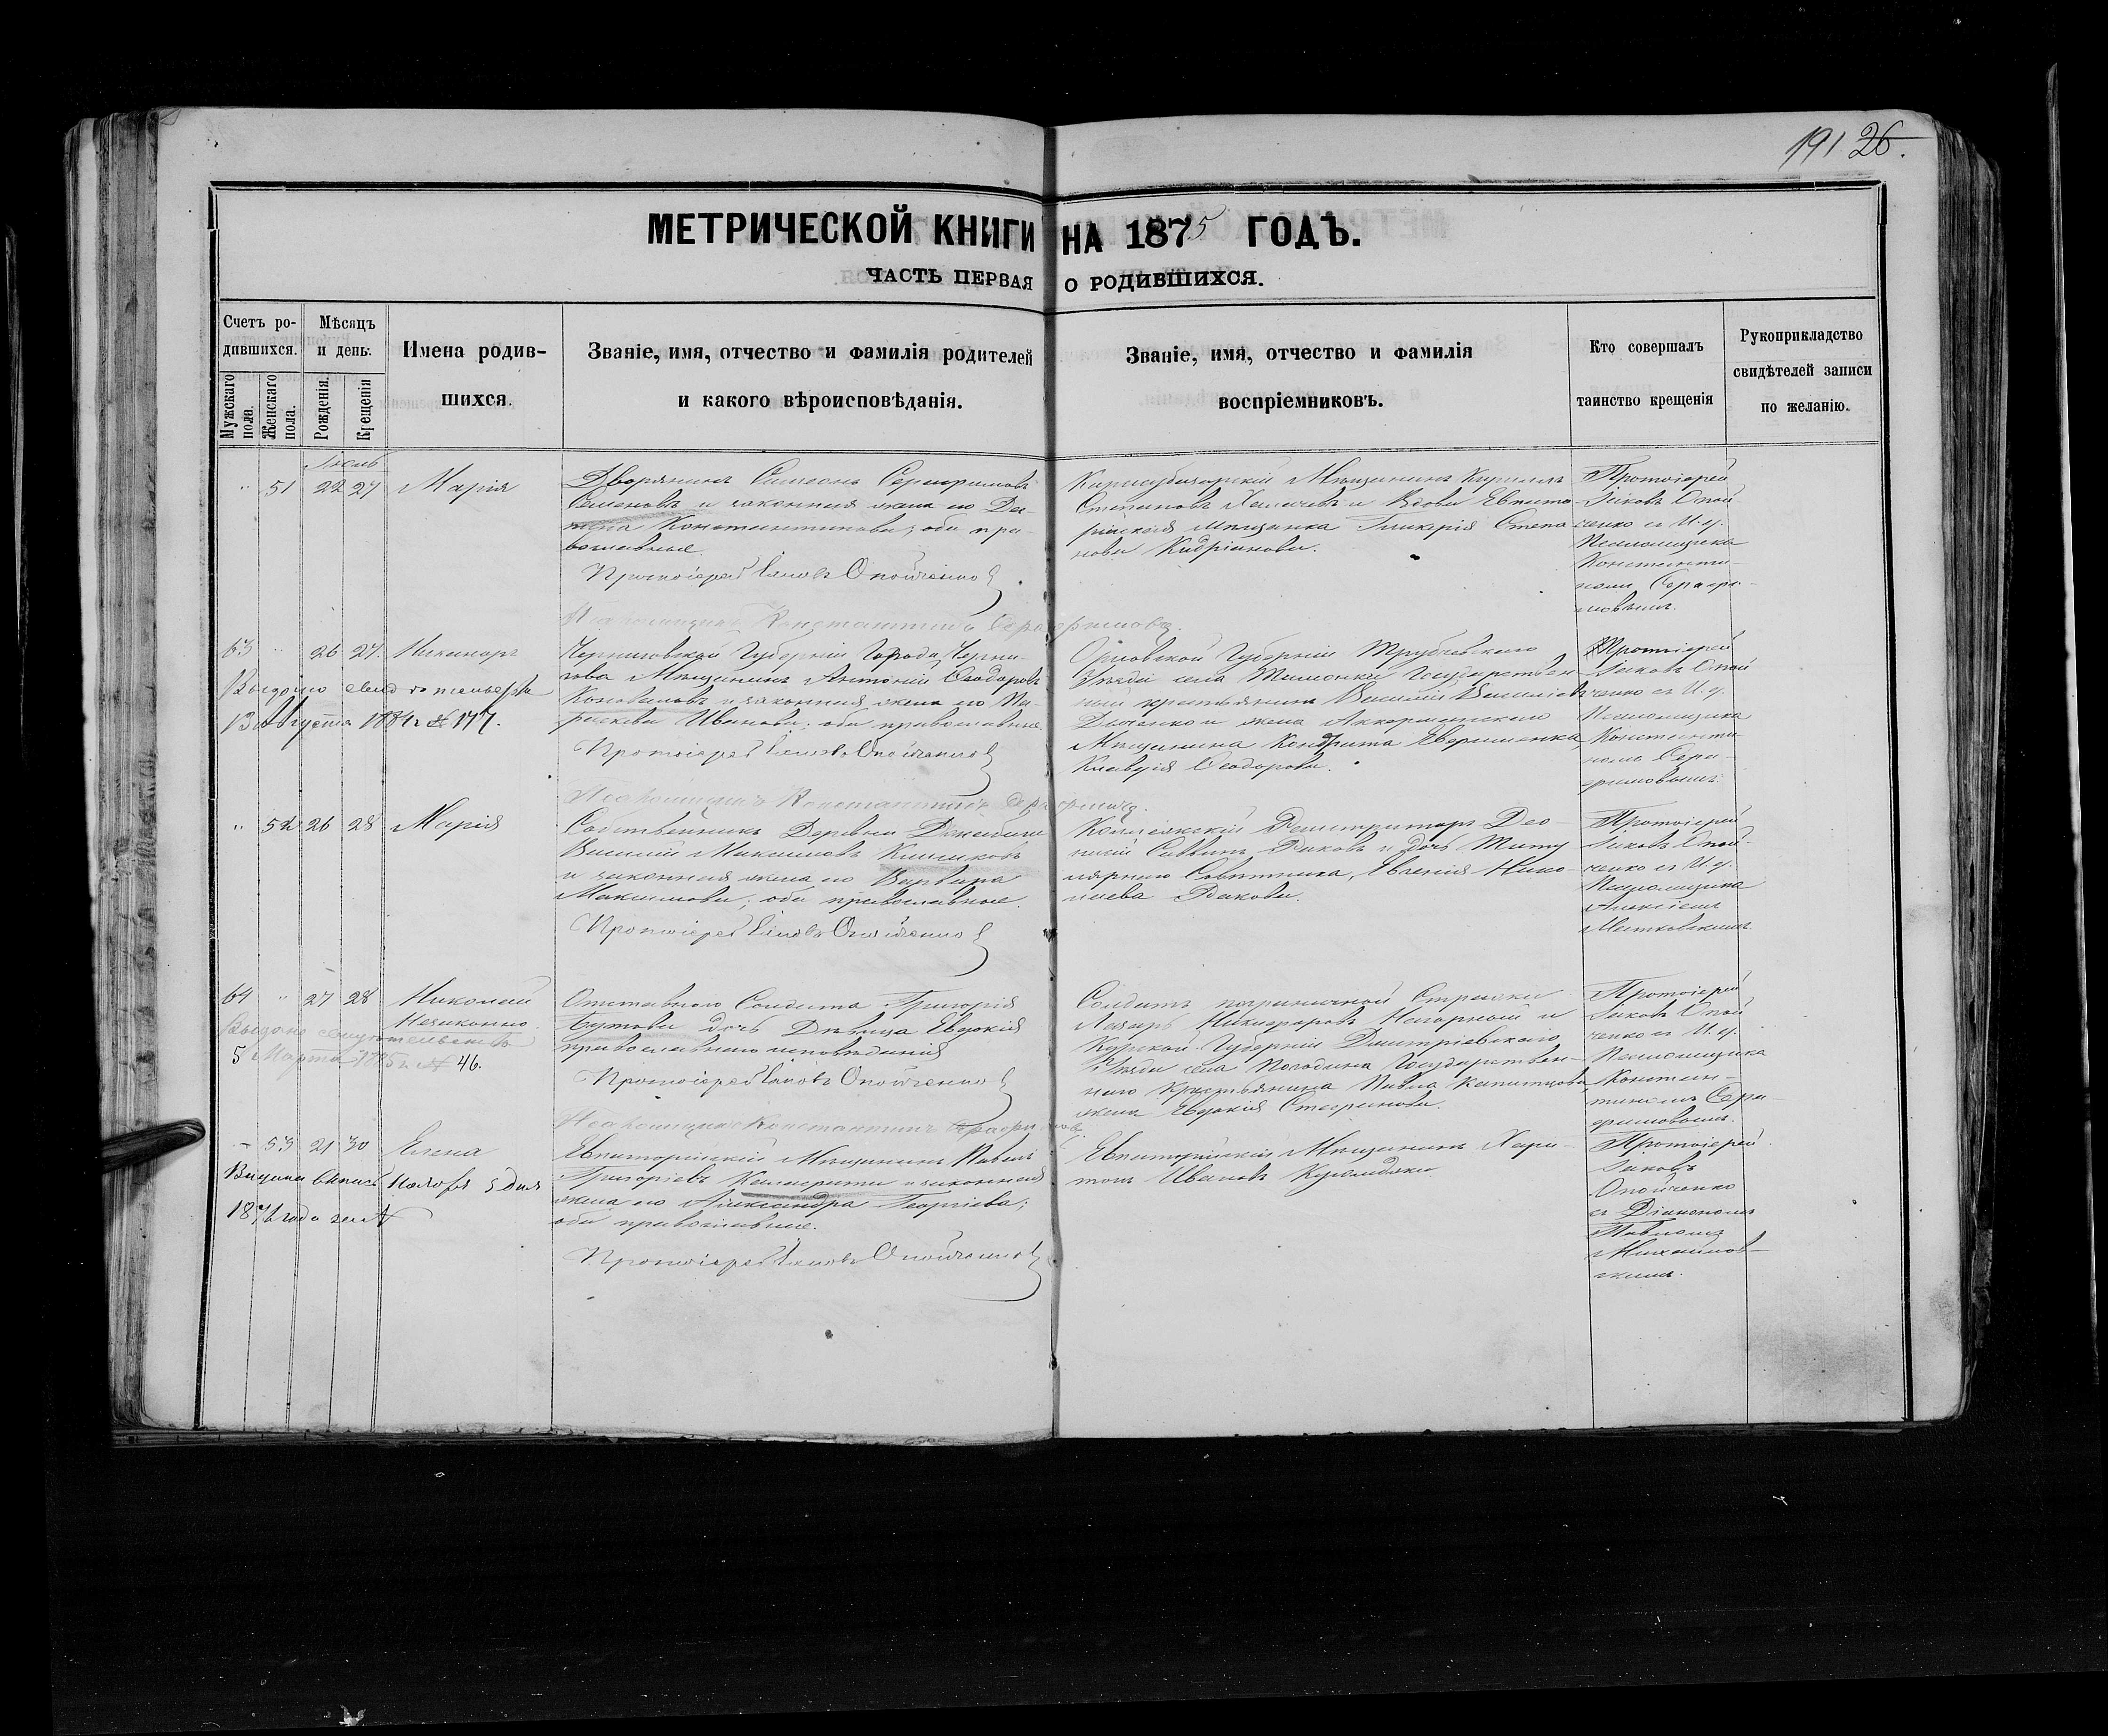 191 26.
МЕТРИЧЕСКОЙ КНИГИ НА 1875 ГОДЪ.
ЧАСТЬ ПЕРВАЯ О РОДИВШИХСЯ.
Счетъ ро-
дившихся.
Мужскаго пола.
Женскаго пола.
Мѣсяцъ
и день.
Рожденія.
Крещенія
Имена родив-
шихся.
Званіе, имя, отчество и фамилія родителей
и какого вѣроисповѣданія.
Званіе, имя, отчество и фамилія
воспріемниковъ.
Кто совершалъ
таинство крещенія
Рукоприкладство
свидѣтелей записи
по желанію.
" 51 22 27 Марія
Дворянинъ Симеонъ Серафимовъ
Семеновъ и законная жена его
Константинова; оба пра-
вославные.
Протоіерей Іаковъ Опойченко
Псаломщикъ Константинъ Серафимовъ.
Карасубазарскій Мѣщанинъ
Степановъ и Вдова Евпато-
рійская мѣщанка Гликерія Степа
нова
Протоіерей
Іаковъ Опой
ченко съ И. д.
Псаломщика
Константи-
номъ Серафи-
мовымъ.
63 " 26 27. Никаноръ
Выдано свид
13 Августа 1884 г № 177.
Черниговской Губерніи Города Черни-
гова Мѣщанинъ Антоній Ѳеодоровъ
Коноваловъ и законная жена его Па-
раскева Иванова; оба православные.
Протоіерей Іаковъ Опойченко
Псаломщикъ Константинъ Серафимовъ.
Орловской Губерніи Трубчевскаго
Уѣзда села Государствен
ный крестьянинъ Василій Василіевъ
и жена Аккерманскаго
Мѣщанина Кондрата
Клавдія Ѳеодорова.
Протоіерей
Іаковъ Опой
ченко съ И. д.
Псаломщика
Константи-
номъ Сера-
фимовымъ.
" 52 26 28 Марія
Собственникъ Деревни
Василій Максимовъ
и законная жена его Варвара
Максимова; оба православные.
Протоіерей Іаковъ Опойченко
Коллежскій Регистраторъ Део-
нисій Саввинъ Раковъ и дочь Титу
лярнаго Совѣтника, Евгенія Нико-
лаева Ракова.
Протоіерей
Іаковъ Опой-
ченко съ И. д.
Псаломщика
Алексіемъ
64 " 27 28 Николай
Незаконно.
Выдано свидѣтельство
5 Марта 1885 г № 46.
Отставного Солдата Григорія
Бутова дочь Дѣвица Евдокія
православнаго исповѣданія
Протоіерей Іаковъ Опойченко
Псаломщикъ Константинъ Серафимовъ
Солдатъ пограничной Стражи
Лазарь Никифоровъ Нагорный и
Курской Губерніи Дмитріевскаго
Уѣзда села Погодина Государствен-
наго Крестьянина Павла
жена Евдокія Стефанова.
Протоіерей
Іаковъ Опой
ченко съ И. д.
Псаломщика
Констан-
тиномъ Сера-
фимовымъ.
- 53 21 30 Елена
Выдана выпись Ноября 5 дня
Евпаторійскій Мѣщанинъ Павелъ
Григоріевъ и законная
жена его Александра Георгіева;
оба православные.
Протоіерей Іаковъ Опойченко
Евпаторійскій Мѣщанинъ Хари-
тонъ Ивановъ
Протоіерей
Іаковъ
Опойченко
съ Діакономъ
Павломъ
Михайлов-
скимъ.